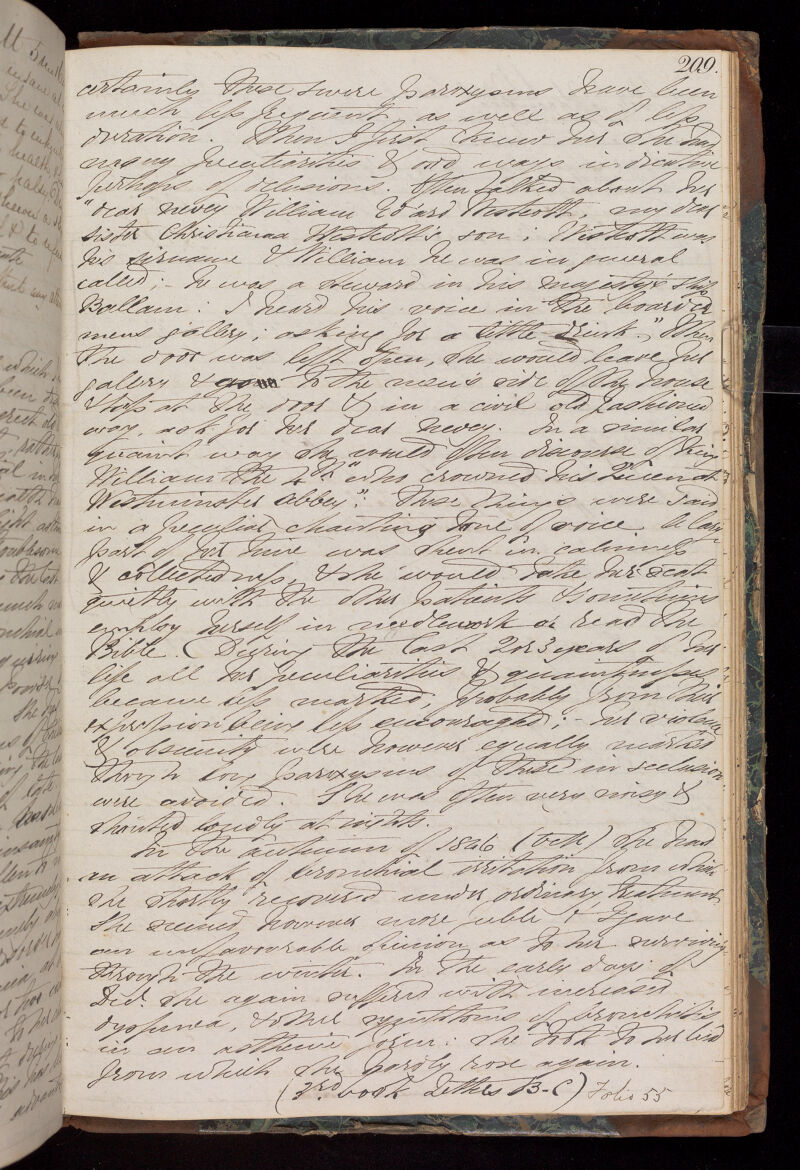 209.
certainly these severe paroxysms have been
much less frequent, as well as of less
duration. When I first knew her she had
many peculiarities & odd ways indicative
perhaps of delusions. Often talked about her
"dear nevey William Edard Westcott, my dear
sister Christiana Westcott's son; Westcott was
his sirname & William he was in general
called; - he was a steward in his majesty's ship
Ballam: I heard his voice in the boarder
mens gallery, asking for a little drink." When
the door was left open, she would leave her
gallery & to the men's side of the house
& tap at the door & in a civil old fashioned
way, ask for her dear nevey. In a similar
quaint way she would often discourse of King
William the 4th "who crowned his Queen at
Westminster Abbey". These things were said
in a peculiar chaunting tone of voice. A large
part of her time was spent in calmness
& collectedness, & she would take her seat
quietly with the other patients & sometimes
employ herself in needlework or read the
Bible. (During the last 2 or 3 years of her
life all her peculiarities & quaintnesses
became less marked, probably from their
expression being less encouraged; - her violence
& obscenity were however equally marked
though long paroxysms of these in seclusion
were avoided. She was often very noisy &
shouted loudly at nights.
In the autumn of 1846 (Oct) she had
an attack of bronchial irritation from which
she shortly recovered under ordinary treatment
She seemed however more feble & I gave
an unfavourable opinion as to her surviving
through the winter. In the early days of
Decr. she again suffered with increased
dyspnea, & other symptoms of bronchitis
in an asthenic form: she took to her bed
from which she hardly rose again.
(3rd book Letters B-C) Folio 55